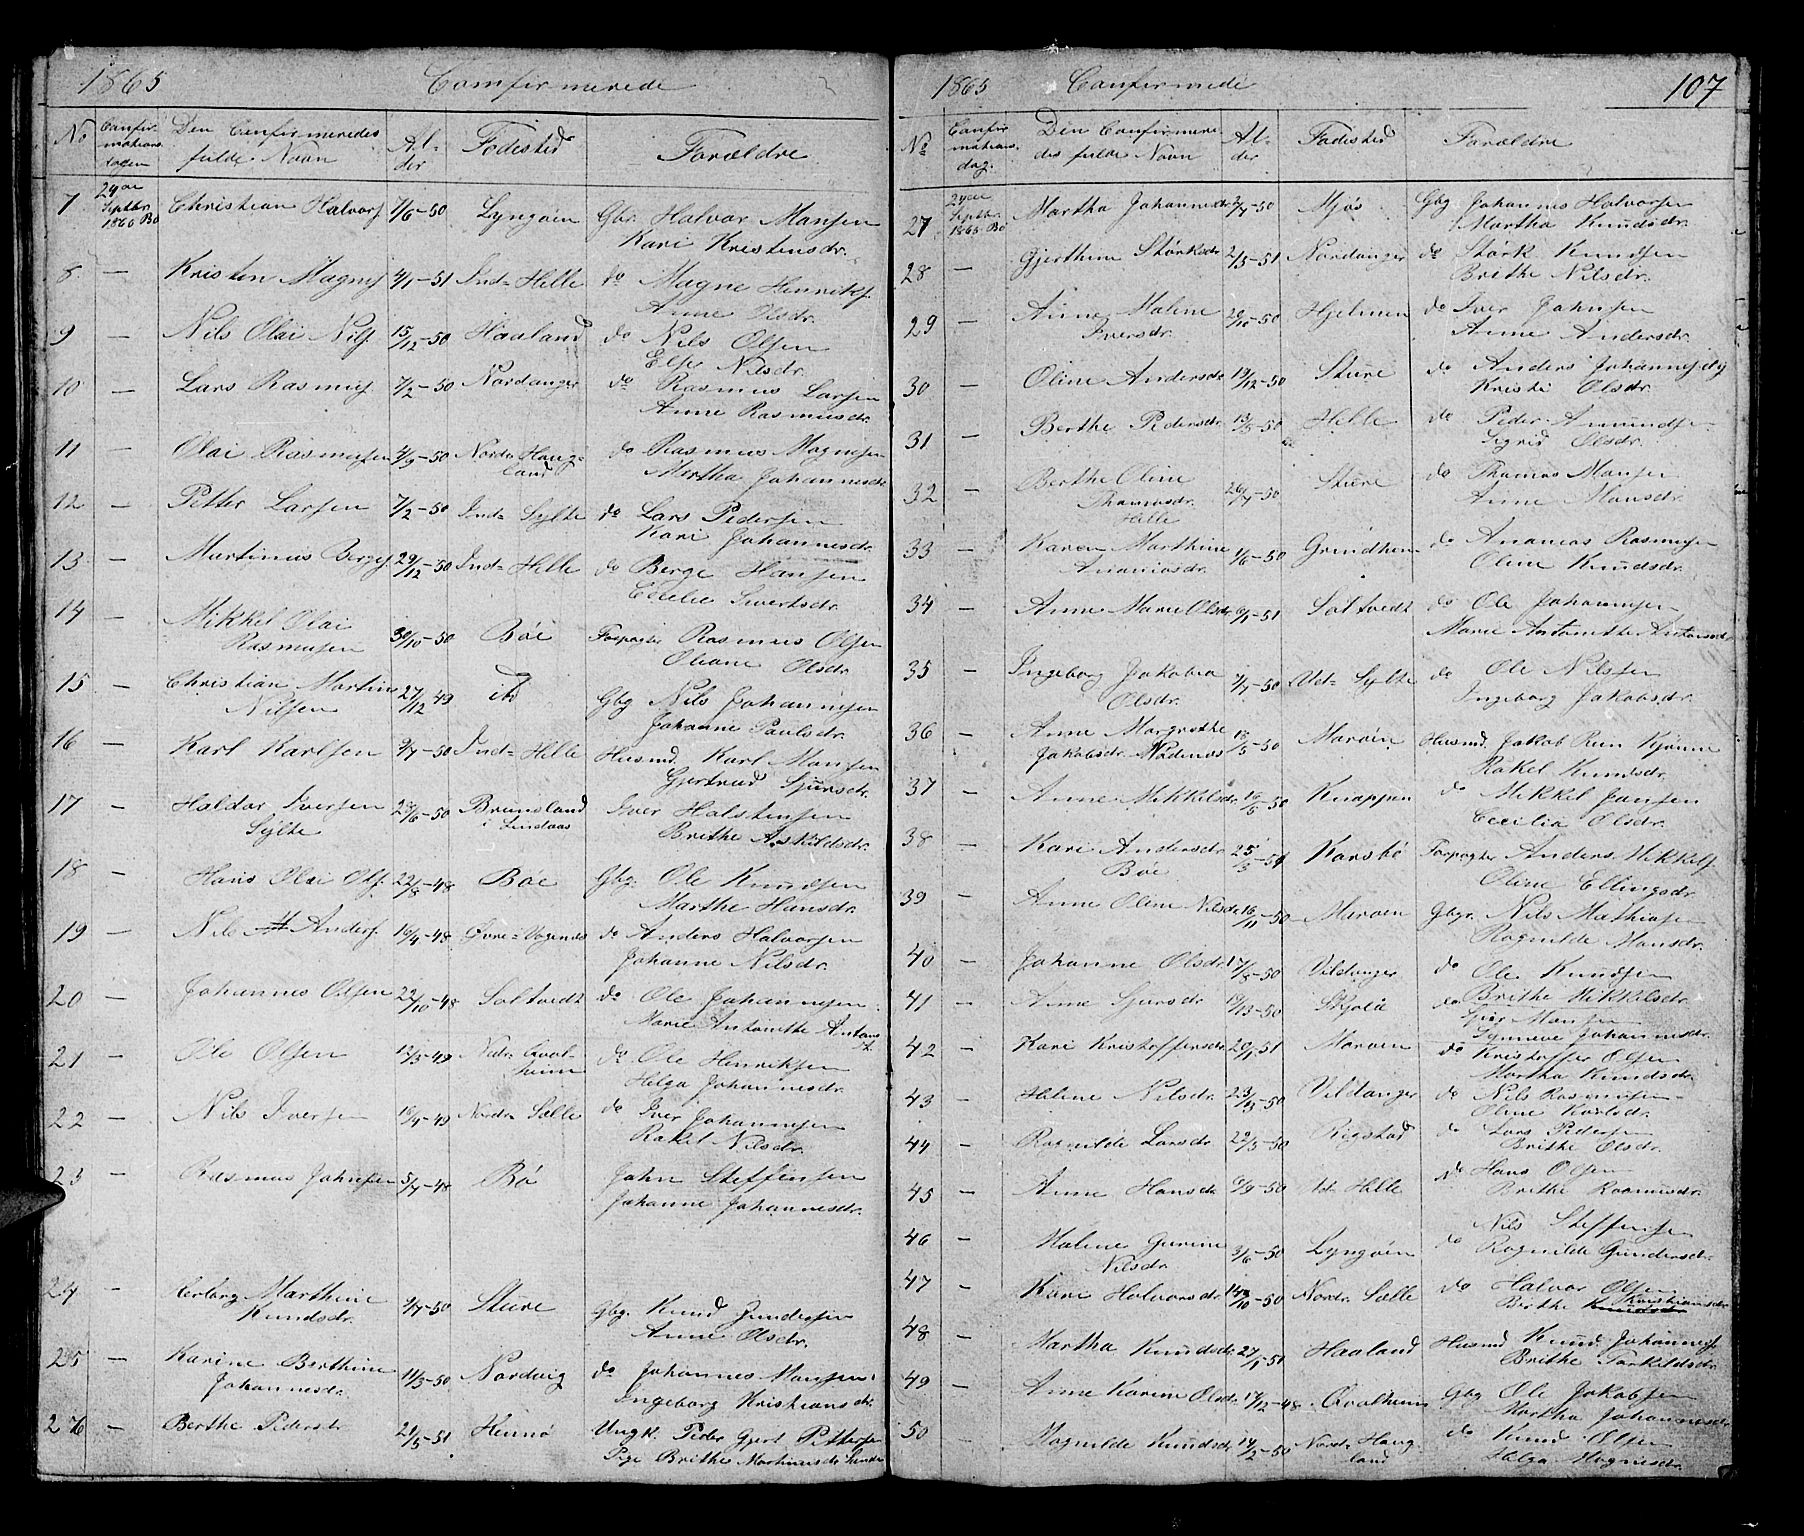 1865 Comfirmerede
No Confir- Den Confirmeredes Al- Fødested Forældre
mations fulde Navn der
dagen
7 24de Septbr. 1865 Bø Christian Halvorf 7/6-50 Lyngøen Gbr. Halvor Monsen
Kari Kristensdr.
8 — Kristen Magnef 4/1-51 Ind= Helle do Magne Henrikf.
Anne Olsdr.
9 — Nils Olai Nilf 15/12-50 Haaland do Nils Olsen
Else Nilsdr.
10 — Lars Rasmusf 7/2-50 Nordanger do Rasmus Larsen
Anne Rasmusdr.
11 — Olai Rasmusen 4/9-50 Nordr Haug-
land do Rasmus Magnesen
Martha Johannesdr
12 — Petter Larsen 7/2-50 Ind= Sylte do Lars Pedersen
Kari Johannesdr.
13 — Martinus Bergef. 29/12-50 Ind= Helle do Berge Hansen
Cecilie Sivertsdr.
14 — Mikkel Olai
Rasmusen 30/10-50 Böe Forpagter Rasmus Olsen
Oliane Olsdr.
15 — Christian Martin
Nilsen 27/12 49 id Gbg Nils Johannesen
Johanne Paulsdr.
16 — Karl Karlsen 9/7-50 Ind= Helle Husmd. Karl Monsen
Gjertrud Sjursdr.
17 — Haldor Iversen
Sylte 23/6-50 Brunsland
i Lindaas Iver Halstensen
Brithe Askildsdr.
18 — Hans Olai Olf. 22/8-48 Böe Gbg. Ole Knudsen
Marthe Hansdr.
19 — Nils Andersf. 16/4-48 Øvre= Vogenes do Anders Halvorsen
Johanne Nilsdr.
20 — Johannes Olsen 22/10-48 Soltvedt do Ole Johannesen
Marie Antonette Antons
d.
21 — Ole Olsen 12/3-49 Nedr. Qval-
heim do Ole Henriksen
Helga Johannesdr.
22 — Nils Iversen 18/4-49 Nordr Sælle do Iver Johannesen
Rakel Nilsdr.
23 — Rasmus Johnsen 5/7-48 Bö John Steffensen
Johanne Johannesdr.
24 — Herborg Marthine
Knudsdr. 9/7-50 Sture Gbg. Knud Gundersen
Anne Olsdr.
25 — Karine Berthine
Johannesdr. 11/3-50 Nordvig do Johannes Monsen
Ingeborg Kristiansdr.
26 — Berthe Pedersdr 21/5-51 Hennö Ungk. Peder Gjert Pettersen
Pige Brithe Marthinusdr
1865 Confirmede 107
No Confir Den Confirmere- Al- Fødested Forældre
mations des fulde Navn der
dag.
27 24de Septbr. 1865 Bö Martha Johannesdr 2/7-50 Mjøs Gbg Johannes Halvorsen
Martha Knudsdr.
28 — Gjerthine Størksdr 2/3-51 Nordanger do Størk Knudsen
Brithe Nilsdr.
29 — Anne Maline
Iversdr. 20/10-50 Hjelmen do Iver Johnsen
Anne Andersdr.
30 — Oline Andersdr 19/12-50 Sture do Anders Johannesen
Kristi Olsdr.
31 — Berthe Pedersdr 13/5-50 Helle do Peder Amundsen
Sigrid Olsdr.
32 — Berthe Oline
Thomasdr.
Helle 26/7-50 Sture do Thomas Monsen
Anne Hansdr.
33 — Karen Marthine
Ananiasdr. 1/6-50 Grindhem do Ananias Rasmusen
Oline Knudsdr.
34 — Anne Marie Olsdr 6/1-51 Soltvedt do Ole Johannesen
Marie Antonette Antonsdr
35 — Ingeborg Jakobea
Olsdr. 2/7-50 Ud= Sylte do Ole Nilssen
Ingeborg Jakobsdr.
36 — Anne Margrethe
Jakobsdr. Nødenes 13/5-50 Marøen Husmd. Jakob Run Kjønne
Rakel Knudsdr.
37 — Anne Mikkelsdr 16/5-50 Knappen do Mikkel Jansen
Cecilia Olsdr.
38 — Kari Andersdr
Böe 25/3-51 Karsbø Forpagter Anders Mikkelf.
Oline Ellingsdr.
39 — Anne Oline Nilsdr 16/11-50 Marøen Gbgr. Nils Mathiasen
Ragnilde Monsdr.
40 — Johanne Olsdr. 17/8-50 Vildanger do Ole Knudsen
Brithe Mikkelsdr.
41 — Anne Sjursdr. 19/12-50 Skjolå do Sjur Monsen
Synneve Johannesdr.
42 — Kari Kristoffersdr 20/1-51 Marøen do Kristoffer Olsen
Martha Knudsdr.
43 — Helene Nilsdr. 23/12-50 Vildanger do Nils Rasmusen
Oline Karlsdr.
44 — Ragnilde Larsdr. 22/3-50 Rigstad do Lars Pedersen
Brithe Olsdr.
45 — Anne Hansdr 6/9-50 Ud= Helle do Hans Olsen
Brithe Rasmusdr.
46 — Malene Gurine
Nilsdr. 3/6-50 Lyngøen do Nils Steffensen
Ragnilde Gundersdr.
47 — Kari Halvorsdr. 14/10-50 Nordr. Sælle do Halvor Olsen
Berthe Knudsdr Kristiansdr
48 — Martha Knudsdr 27/1-51 Haaland Husmd Knud Johannesf
Brithe Torkildsdr.
49 — Anne Karine Olsdr 17/12-48 Qvalheim Gbg Ole Jakobsen
Martha Johannesdr
50 Magnilde Knudsdr. 14/2-50 Nordr Haug-
land do Knud Olsen
Helga Magnesdr.